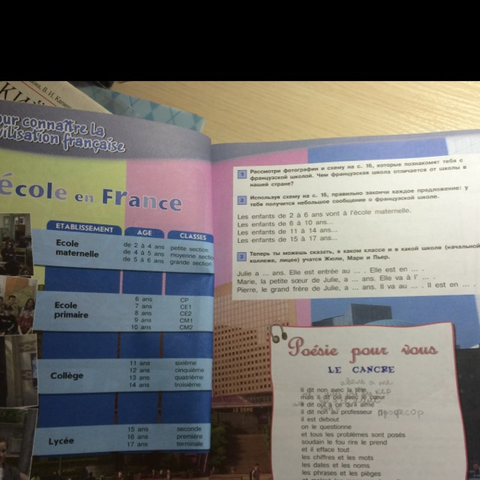 В.Н. Ка
our connaître la
vilisation française
école en France
ETABLISSEMENT AGE CLASSES
Ecole maternelle
de 2 à 4 ans petite section
de 4 à 5 ans moyenne section
de 5 à 6 ans grande section
Ecole primaire
6 ans CP
7 ans CE1
8 ans CE2
9 ans CM1
10 ans CM2
Collège
11 ans sixième
12 ans cinquième
13 ans quatrième
14 ans troisième
Lycée
15 ans seconde
16 ans première
17 ans terminale
1 Рассмотри фотографии и схему на с. 16, которые познакомят тебя с
французской школой. Чем французская школа отличается от школы в
нашей стране?
2 Используя схему на с. 16, правильно закончи каждое предложение: у
тебя получится небольшое сообщение о французской школе.
Les enfants de 2 à 6 ans vont à l'école maternelle.
Les enfants de 6 à 10 ans...
Les enfants de 11 à 14 ans...
Les enfants de 15 à 17 ans...
3 Теперь ты можешь сказать, в каком классе и в какой школе (начальной,
коллеже, лицее) учатся Жюли, Мари и Пьер.
Julie a ... ans. Elle est entrée au ... . Elle est en ... .
Marie, la petite sœur de Julie, a ... ans. Elle va à l' ... .
Pierre, le grand frère de Julie, a ... ans. Il va au ... . Il est en ... .
Poésie pour vous
LE CANCRE
il dit non avec la tête
mais il dit oui avec le cœur
il dit oui à ce qu'il aime
il dit non au professeur
il est debout
on le questionne
et tous les problèmes sont posés
soudain le fou rire le prend
et il efface tout
les chiffres et les mots
les dates et les noms
les phrases et les pièges